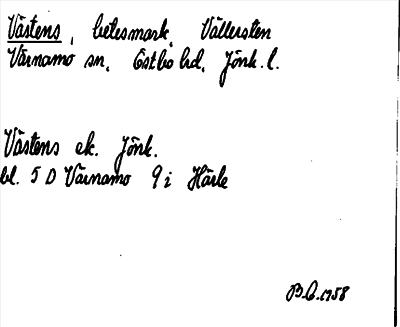 Västens, betesmark, Vällersten
Värnamo sn, Östbo hd, Jönk. l.
Västens ek. Jönk.
bl. 5 D Värnamo 9 i Härle
B.G. 1958